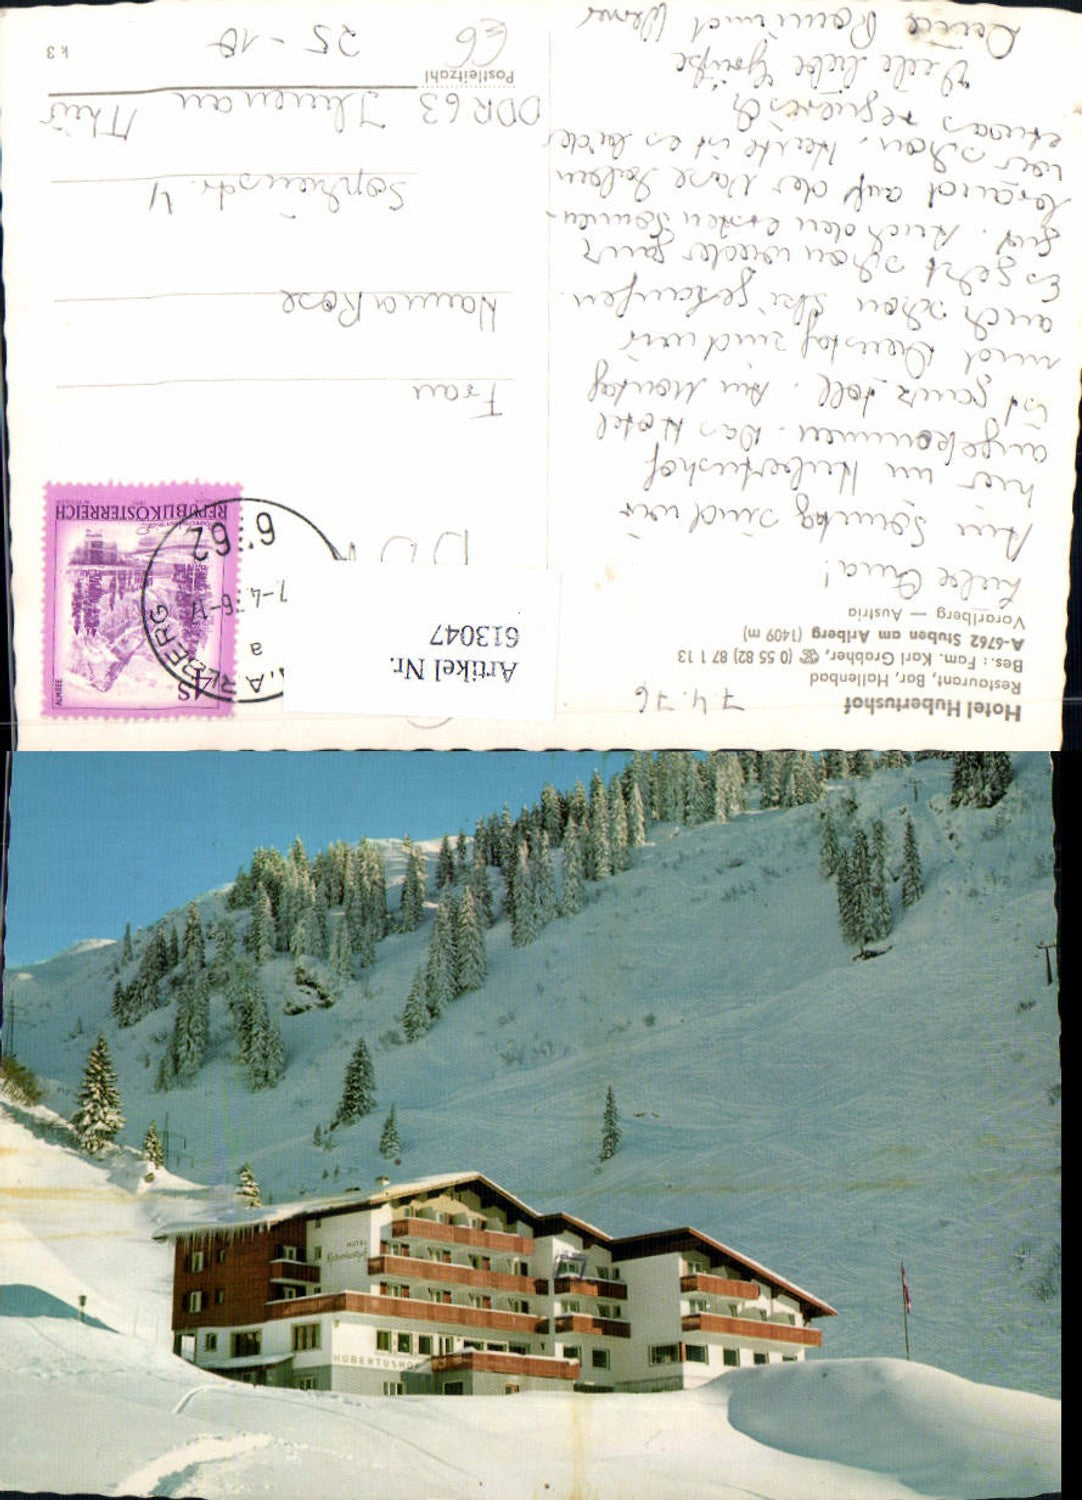 Hotel Hubertushof
Restaurant, Bar, Hallenbad
Bes.: Fam. Karl Grabher, ☎ (0 55 82) 87 1 13
A-6762 Stuben am Arlberg (1409 m)
Vorarlberg — Austria
7.4.76
Liebe Oma!
Am Samstag sind wir
hier im Hubertushof
angekommen. Das Hotel
ist ganz toll. Am Montag
und Dienstag sind wir
auch schon Ski gelaufen.
Es geht schon wieder ganz
gut. Auch den ersten Sonnen-
brand auf der Nase haben
wir schon. Heute ist es leider
etwas regnerisch
Viele liebe Grüße
Deine
und
Artikel Nr.
613047
REPUBLIK ÖSTERREICH
ALMSEE
4S
6762
7-4.76-1
a
ARLBERG
Frau
Hanna Rose
Sophienstr. 4
DDR 63 Ilmenau Thür
Postleitzahl
25-10
k 3
HOTEL
Hubertushof
HUBERTUSHOF